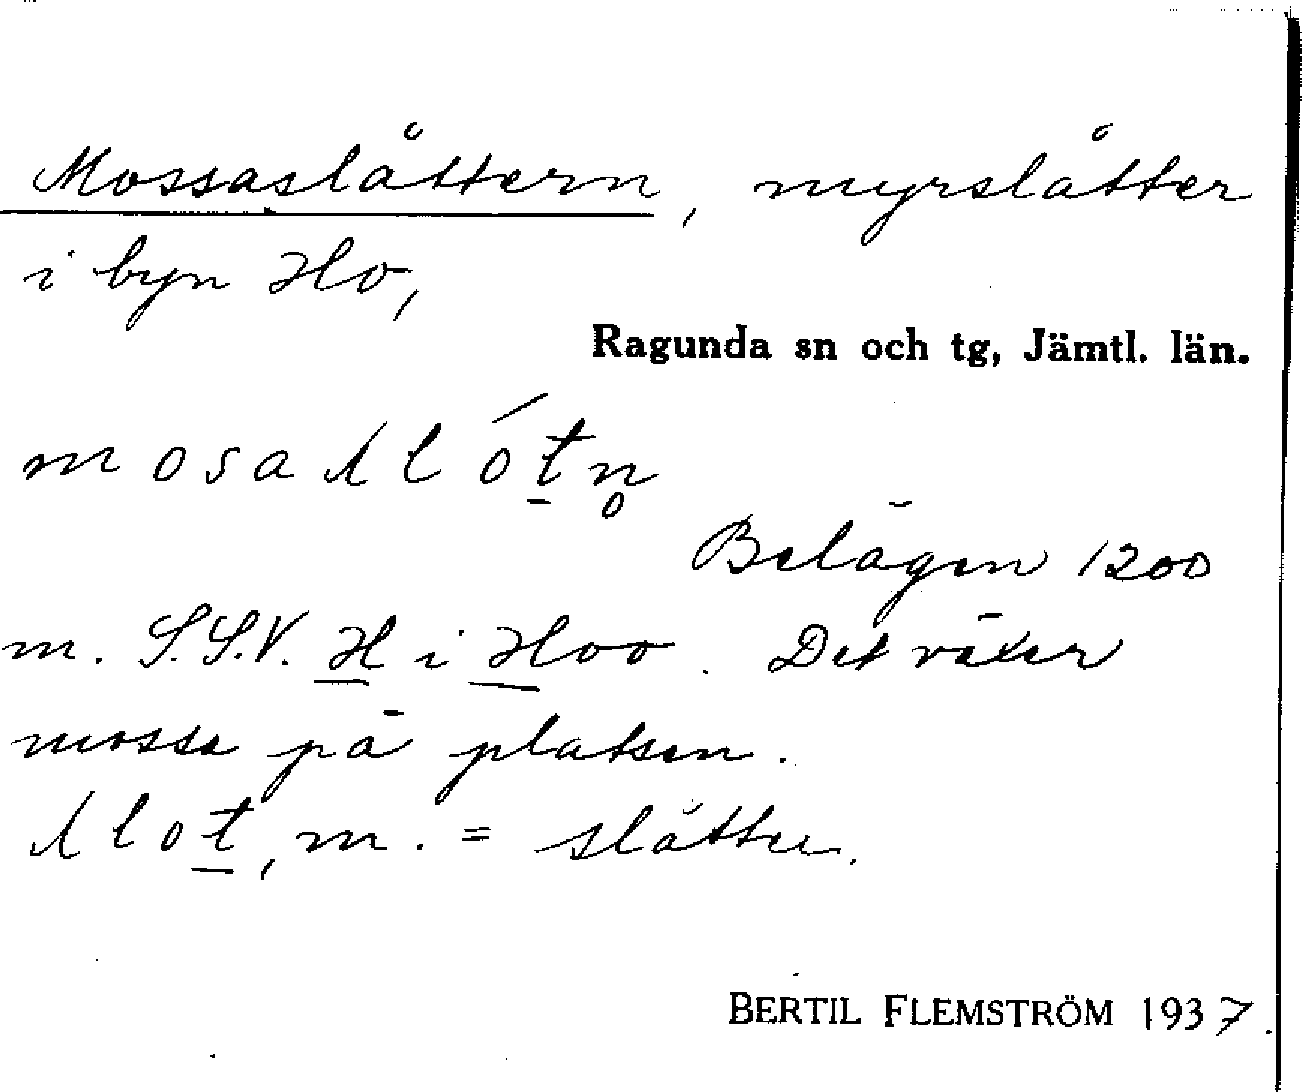 Mossaslåttern, myrslåtter
i byn Ho,
Ragunda sn och tg, Jämtl. län.
mosaslótn̥
Belägen 1200
m. S.S.V. H i Hoo. Det växer
mossa på platsen.
slot, m. = slåtter.
BERTIL FLEMSTRÖM 1937.